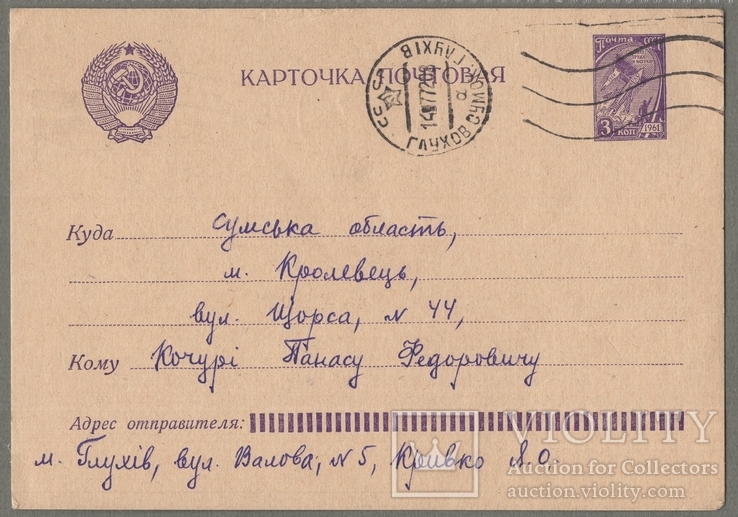 КАРТОЧКА ПОЧТОВАЯ
ГЛУХІВ
ГЛУХОВ СУМСКОЙ
СССР
Почта СССР
3 КОП
1961
Куда Сумська область,
м. Кролевець,
вул. Щорса, № 44,
Кому Кочурі Панасу Федоровичу
Адрес отправителя:
м. Глухів, вул. Валова, № 5, Кривко Я.О.
VIOLITY
Auction for Collectors
auction.violity.com